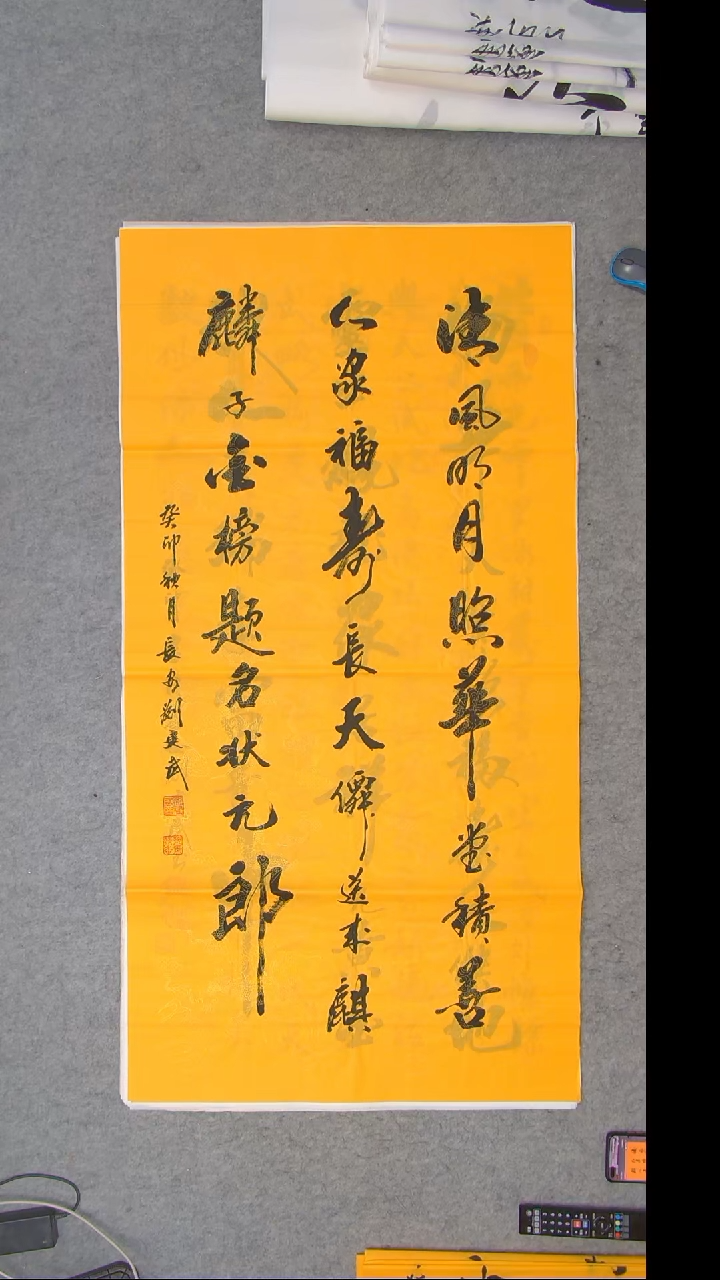 清風明月照華堂積善
人家福寿長天僊送来麒
麟子金榜题名状元郎
癸卯秋月長安劉建武